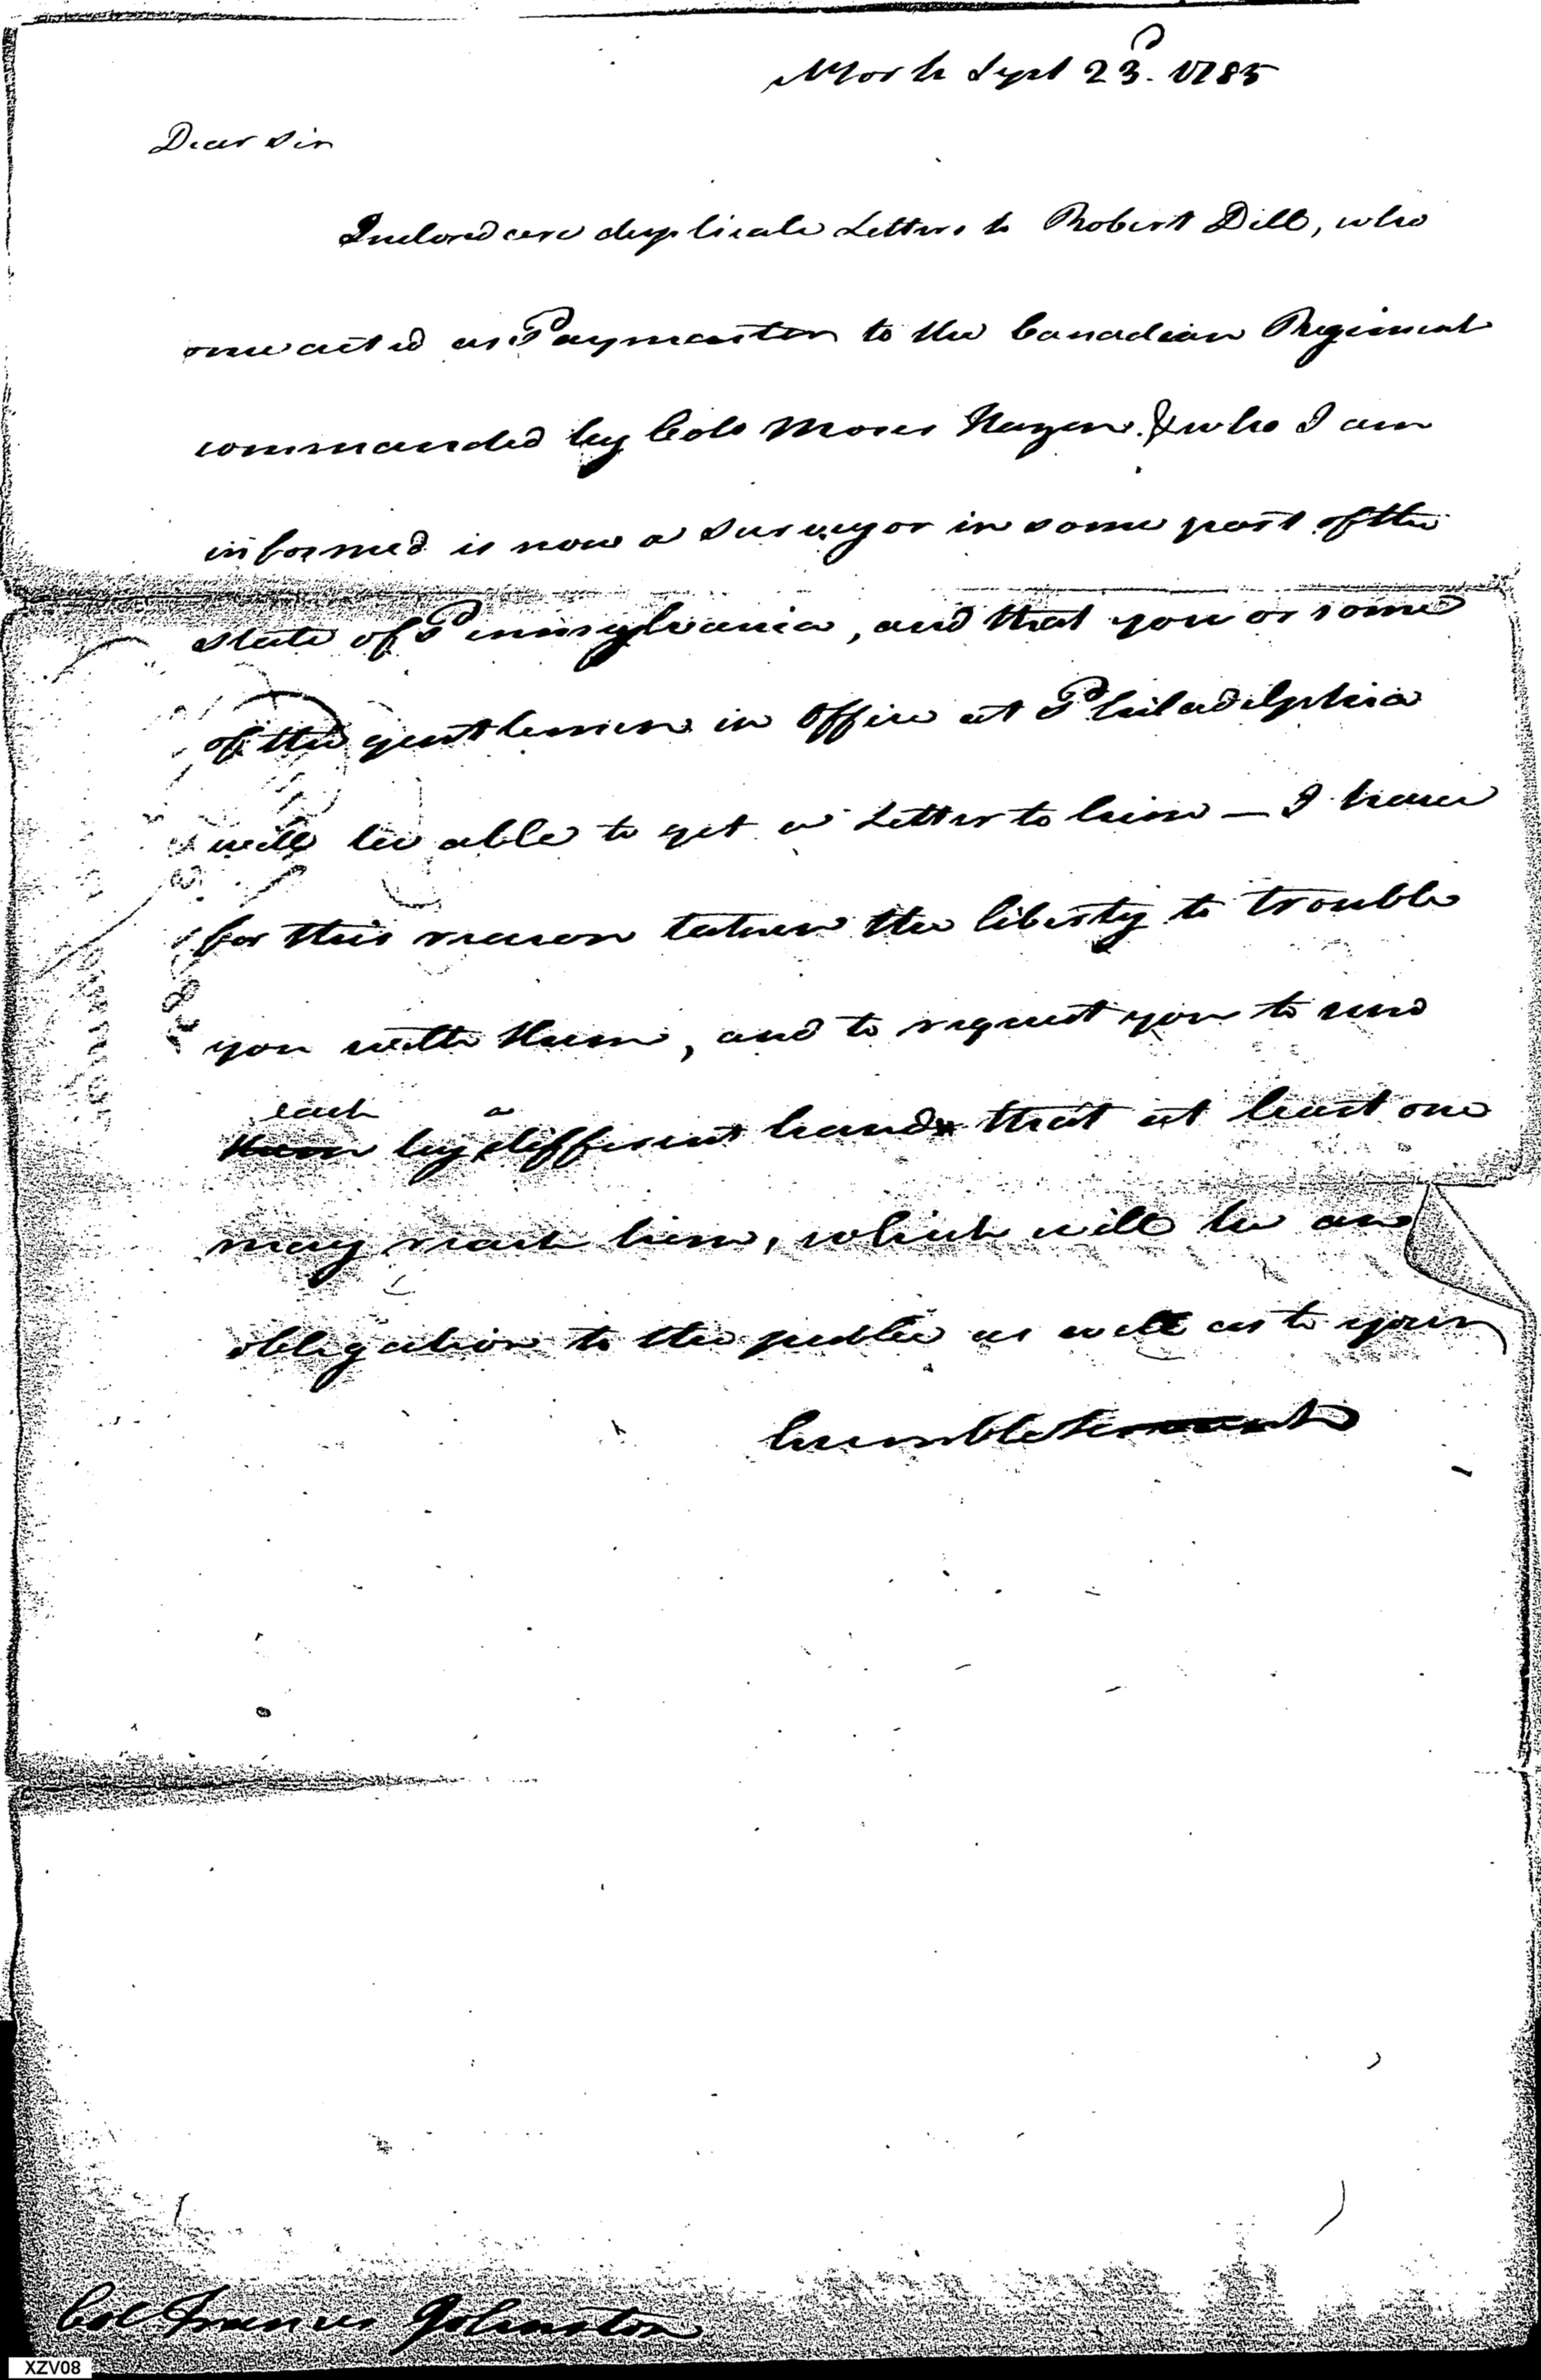 York Sept 23d. 1785
Dear Sir
Inclosed are duplicate Letters to Robert Dill, who
once acted as Paymaster to the Canadian Regiment
commanded by Colo Moses Hazen. & who I am
informed is now a Surveyor in some part of the
State of Pennsylvania, and that you or some
of the gentlemen in Office at Philadelphia
will be able to get a Letter to him — I have
for this reason taken the liberty to trouble
you with them, and to request you to send
each a
them by different hands that at least one
may reach him, which will be an
obligation to the public as well as to your
humble Servant
Col Francis Johnston
XZV08